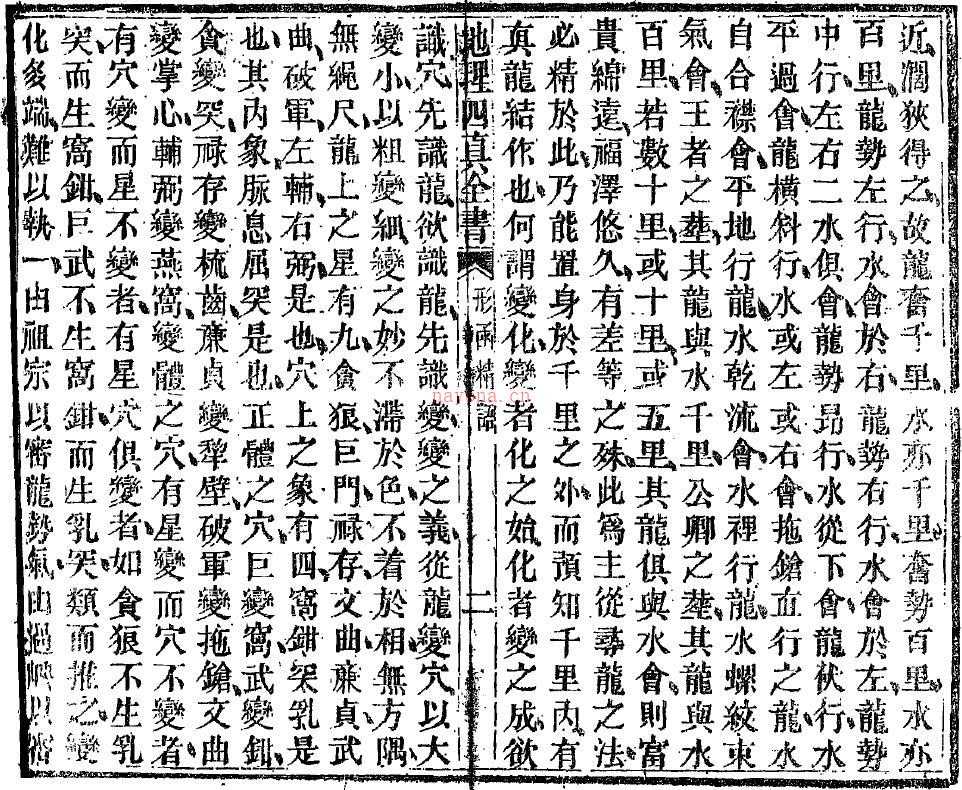 近濶狹得之故龍奮千里水亦千里奮勢百里水亦
百里龍勢左行水會於右龍勢右行水會於左龍勢
中行左右二水俱會龍勢昂行水從下會龍伏行水
平過會龍橫斜行水或左或右會拖鎗直行之龍水
自合襟會平地行龍水乾流會水裡行龍水螺紋束
氣會王者之塟其龍與水千里公卿之塟其龍與水
百里若數十里或十里或五里其龍俱與水會則富
貴綿遠福澤悠久有差等之殊此爲主從尋龍之法
必精於此乃能置身於千里之外而預知千里內有
真龍結作也何謂變化變者化之始化者變之成欲
地理四真全書 形函精語 二
識穴先識龍欲識龍先識變變之義從龍變穴以大
變小以粗變細變之妙不滯於色不着於相無方隅
無繩尺龍上之星有九貪狼巨門祿存文曲廉貞武
曲破軍左輔右弼是也穴上之象有四窩鉗突乳是
也其內象脉息屈突是也正體之穴巨變窩武變鉗
貪變突祿存變梳齒廉貞變犂壁破軍變拖鎗文曲
變掌心輔弼變燕窩變體之穴有星變而穴不變者
有穴變而星不變者有星穴俱變者如貪狼不生乳
突而生窩鉗巨武不生窩鉗而生乳突類而推之變
化多端難以執一由祖宗以審龍勢氣由過峽以審